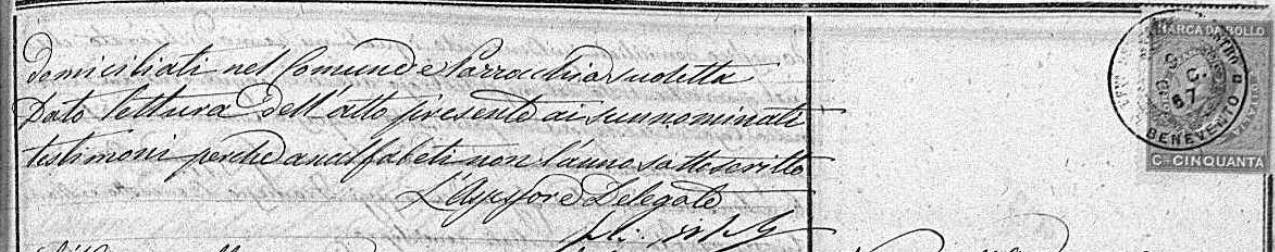 domiciliati nel Comune e Parrocchia sudetta
Dato lettura dell'atto presente ai sunnominati
testimoni perche analfabeti non l'anno sottoscritto
L'Assessore Delegato
MARCA DA BOLLO
87
BENEVENTO
C^MI CINQUANTA